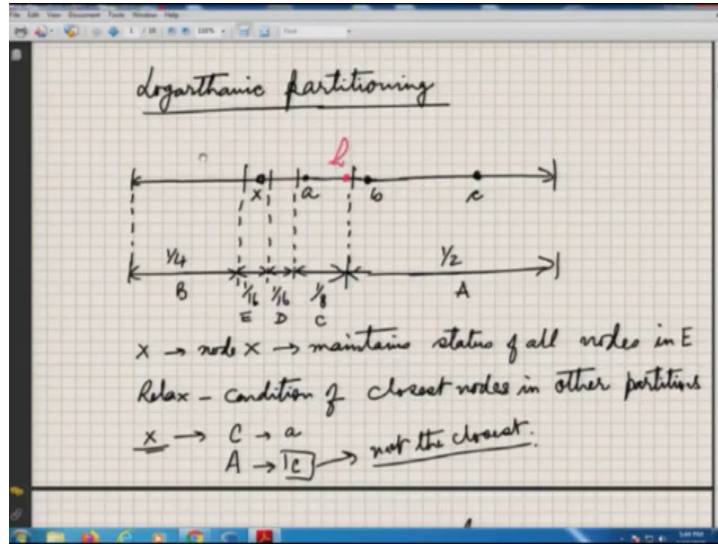 File Edit View Document Tools Window Help
1 / 10 100% Find
Logarthamic partitioning
x a b c
1/4 1/16 1/16 1/8 1/2
B E D C A
X → node X → maintains status of all nodes in E
Relax - condition of closest nodes in other partitions
x → C → a
A → c → not the closest.